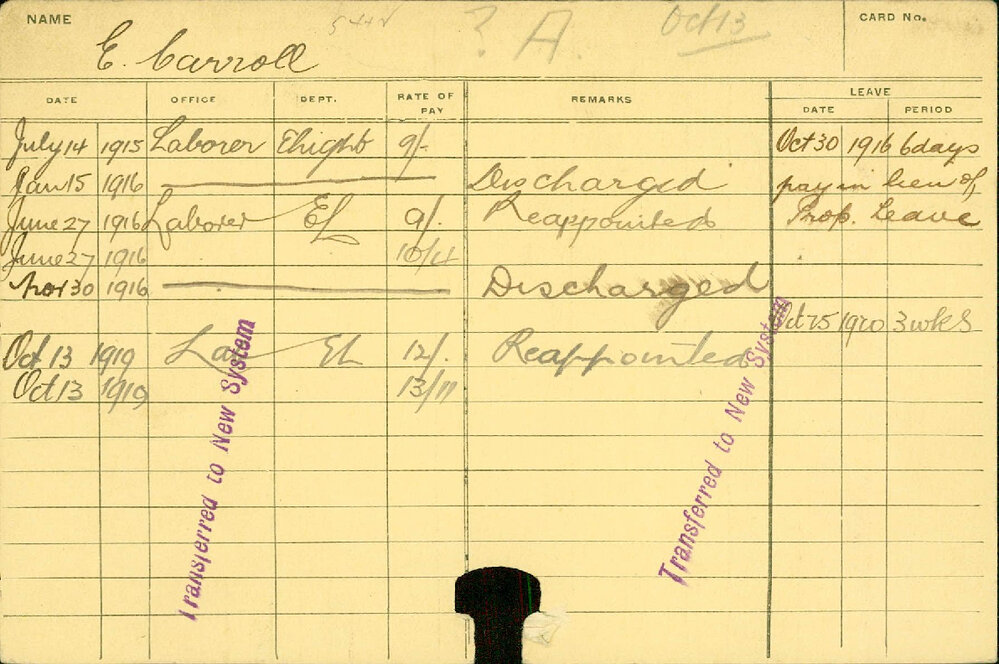 NAME ? A. Oct 13 CARD No.
E. Carroll
DATE OFFICE DEPT. RATE OF PAY REMARKS LEAVE
DATE PERIOD
July 14 1915 Laborer Elight 9/- Oct 30 1916 6 days
Jan 15 1916 Discharged pay in lieu of
June 27 1916 Laborer EL 9/- Reappointed Prop. Leave
June 27 1916 10/4
Nov 30 1916 Discharged
Oct 25 1920 3 wks
Oct 13 1919 La EL 12/- Reappointed
Oct 13 1919 13/11
Transferred to New System
Transferred to New System